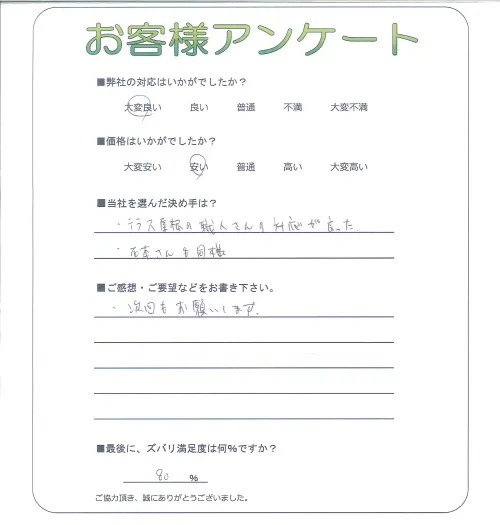 お客様アンケート
■弊社の対応はいかがでしたか？
大変良い 良い 普通 不満 大変不満
■価格はいかがでしたか？
大変安い 安い 普通 高い 大変高い
■当社を選んだ決め手は？
・テラス屋根の職人さんの対応が良った.
さんも同様
■ご感想・ご要望などをお書き下さい。
・次回もお願いします.
■最後に、ズバリ満足度は何％ですか？
80 ％
ご協力頂き、誠にありがとうございました。